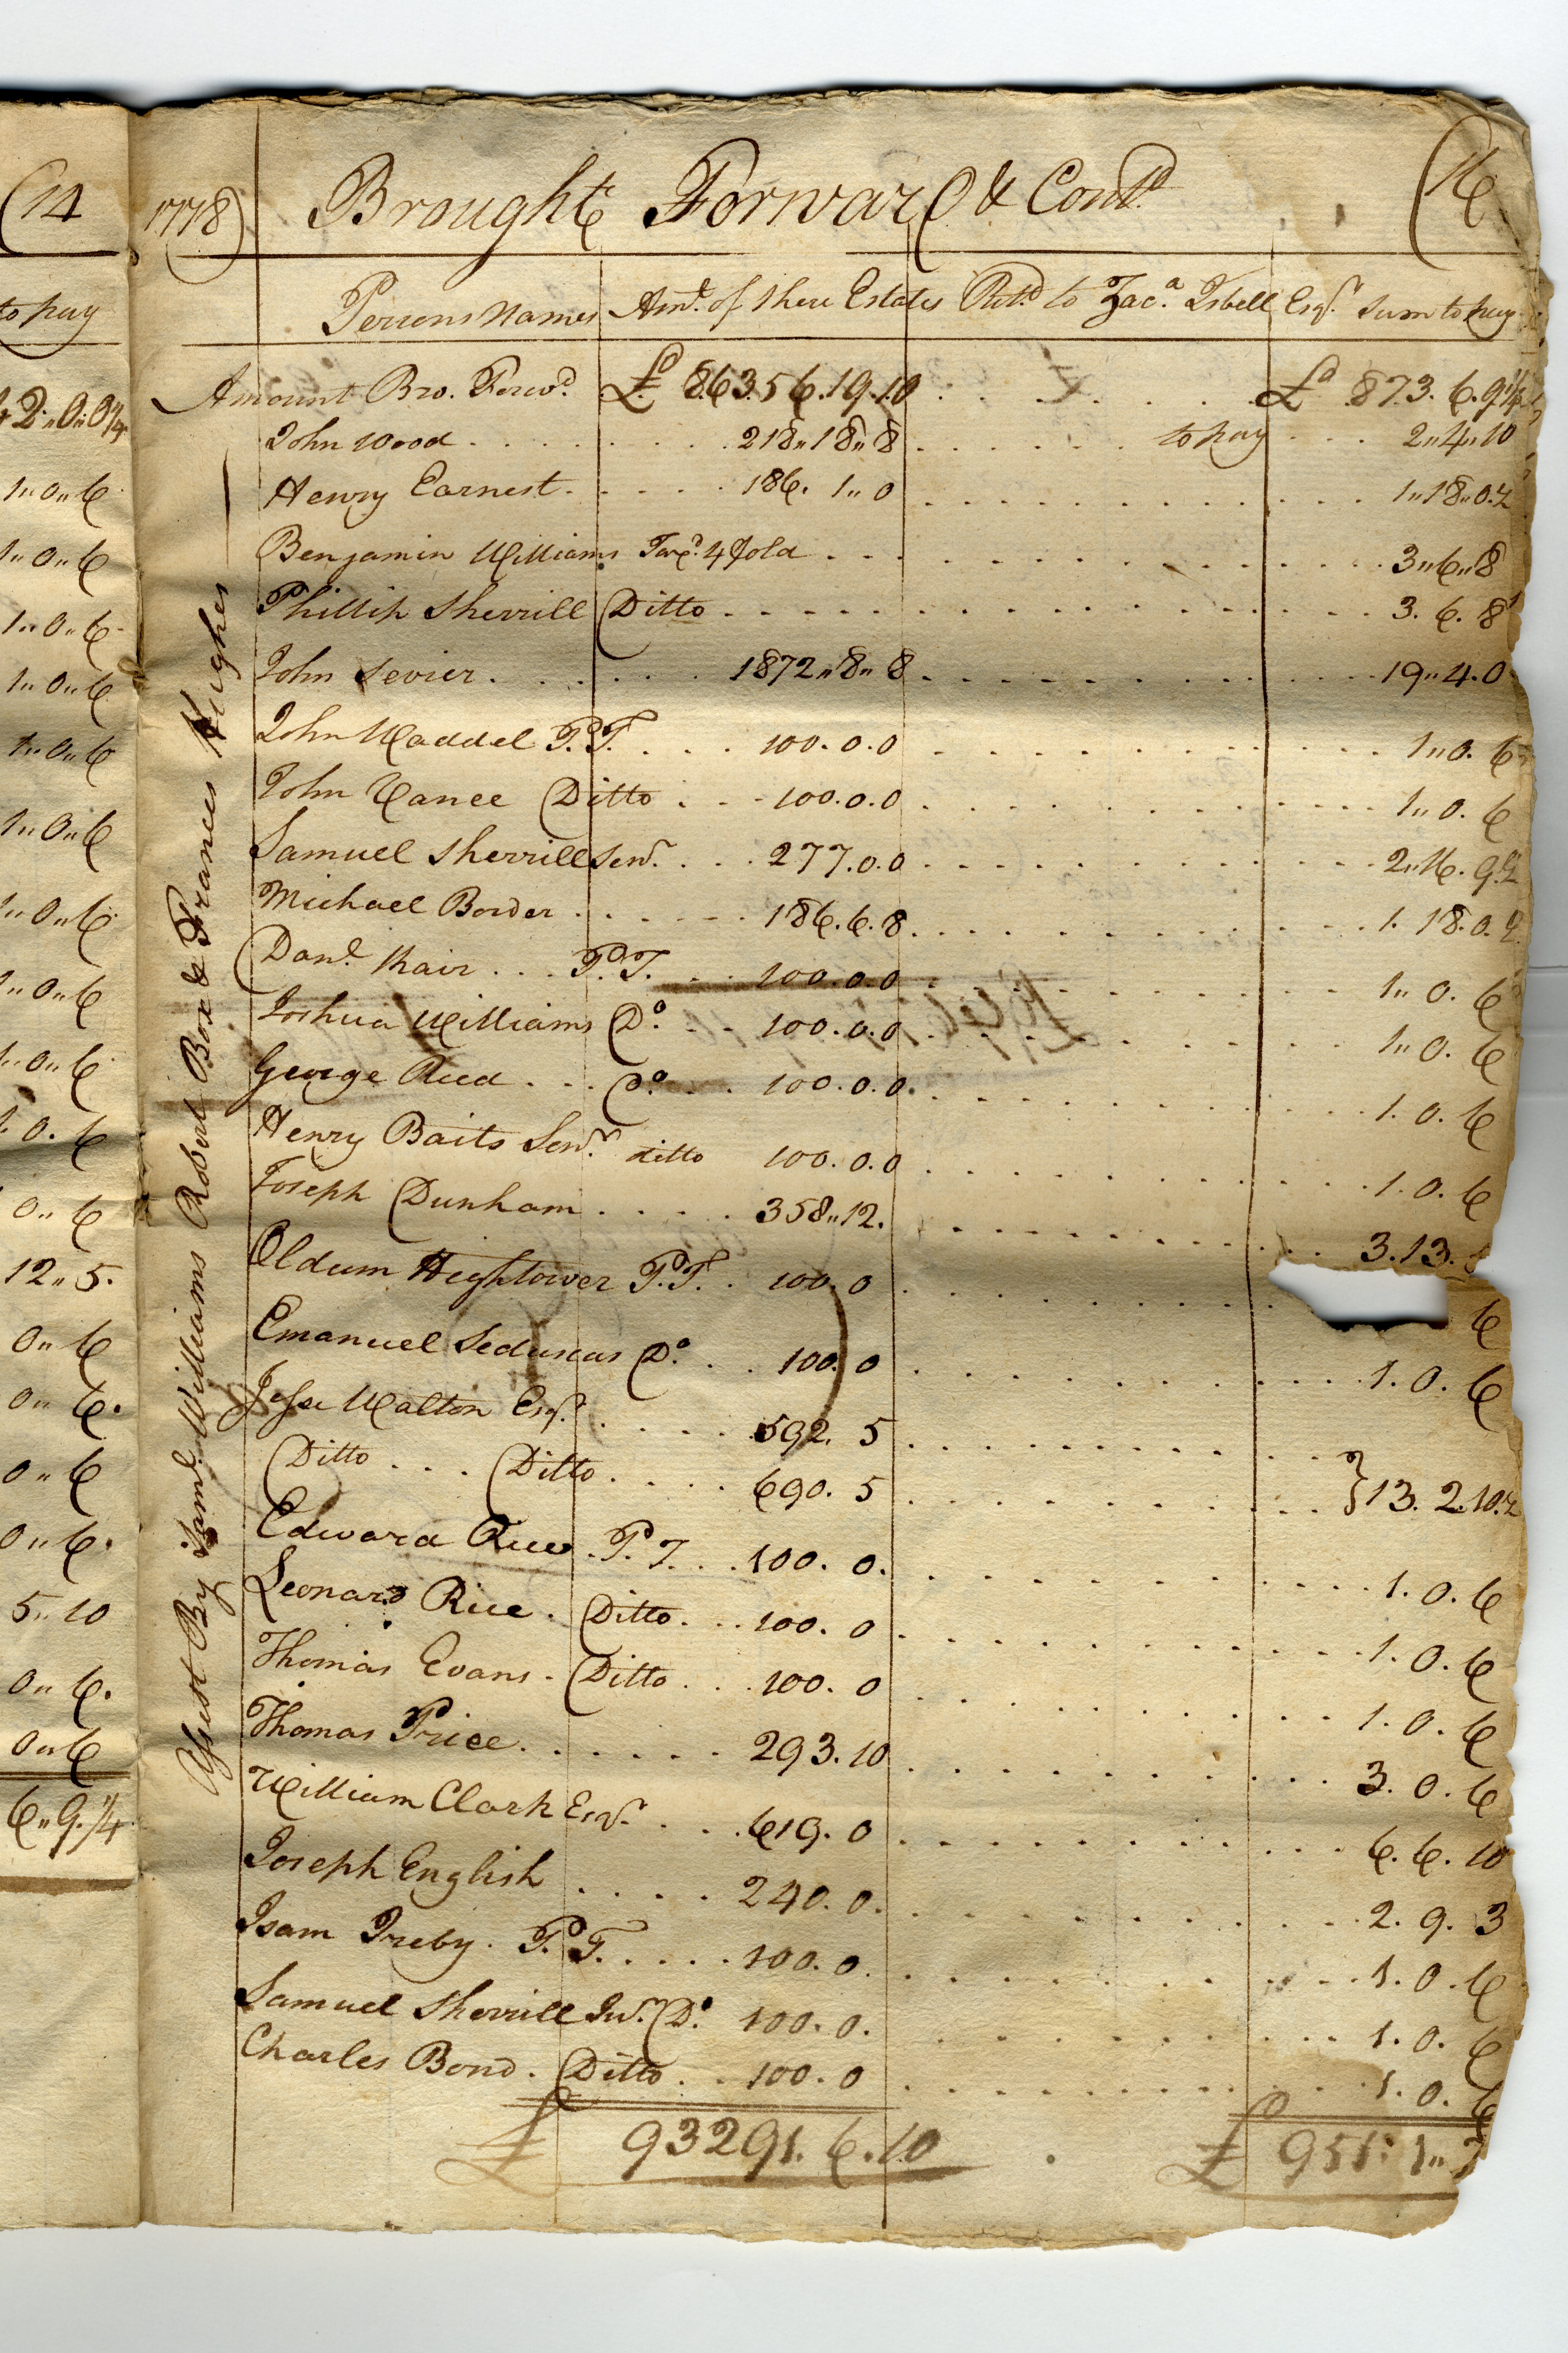 (14
to pay
0.0¼
1,,0,,6
1,,0,,6
1,,0,,6
1,,0,,6
1,,0,,6
1,,0,,6
1,,0,,6
1,,0,,6
1,,0,,6
1.0.6
0,,6
12,,5.
0,,6
0,,6.
0,,6
0,,6.
5,,10
0,,6.
0,,6
6,,9.¼
1778)
Brought Forward & Contd. (16
Persons Names Amt. of there Estates Retd. to Zaca. Isbell Esqr. Sum to pay
Amount Bro. Forwd. £ 86356.19.10 £ 873.6.9¼
John Wood 218,,18,,8 to pay 2,,4,,10
Henry Earnest 186.1,,0 1,,18,,0.2
Benjamin Williams Taxd. 4 fold 3,,6,,8
Phillip Sherrill Ditto 3.6.8
John Sevier 1872,,8,,8 19,,4.0
John Waddel P.T. 100.0.0 1,,0.6
John Vance Ditto 100.0.0 1,,0.6
Samuel Sherrill Senr. 277.0.0 2,,16.9.2
Michael Border 186.6.8 1.18.0.2
Danl. Rair P.T. 100.0.0 1,,0.6
Joshua Williams Do. 100.0.0 1,,0.6
George Reed Do. 100.0.0 1.0.6
Henry Baits Senr. ditto 100.0.0 1.0.6
Joseph Dunham 358,,12. 3.13.
Oldum Hightower P.T. 100.0 6
Emanuel Seduscus Do. 100.0 1.0.6
Jesse Walton Esqr. 592.5
Ditto Ditto 690.5 } 13.2.10.2
Edward Rice P.T. 100.0. 1.0.6
Leonard Rice Ditto 100.0 1.0.6
Thomas Evans Ditto 100.0 1.0.6
Thomas Price 293.10 3.0.6
William Clark Esqr. 619.0 6.6.10
Joseph English 240.0. 2.9.3
Isam Ireby P.T. 100.0. 1.0.6
Samuel Sherrill Jur. Do. 100.0. 1.0.6
Charles Bond. Ditto 100.0 1.0.6
£ 93291.6.10 £ 951.1,,
Assest By Saml. Williams Robert Box & Frances Hughes